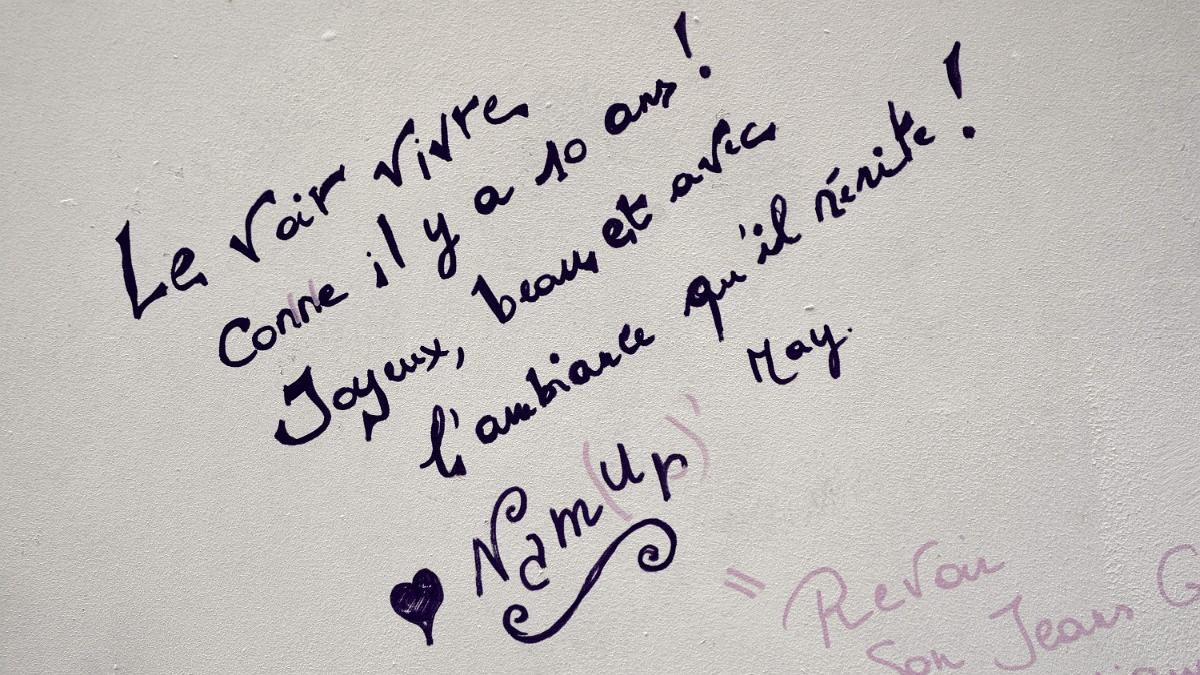 Le voir vivre
Comme il y a 10 ans !
Joyeux, beau et avec
l'ambiance qu'il mérite !
May.
♥ Nam(up)
" Revoir
Son Jean